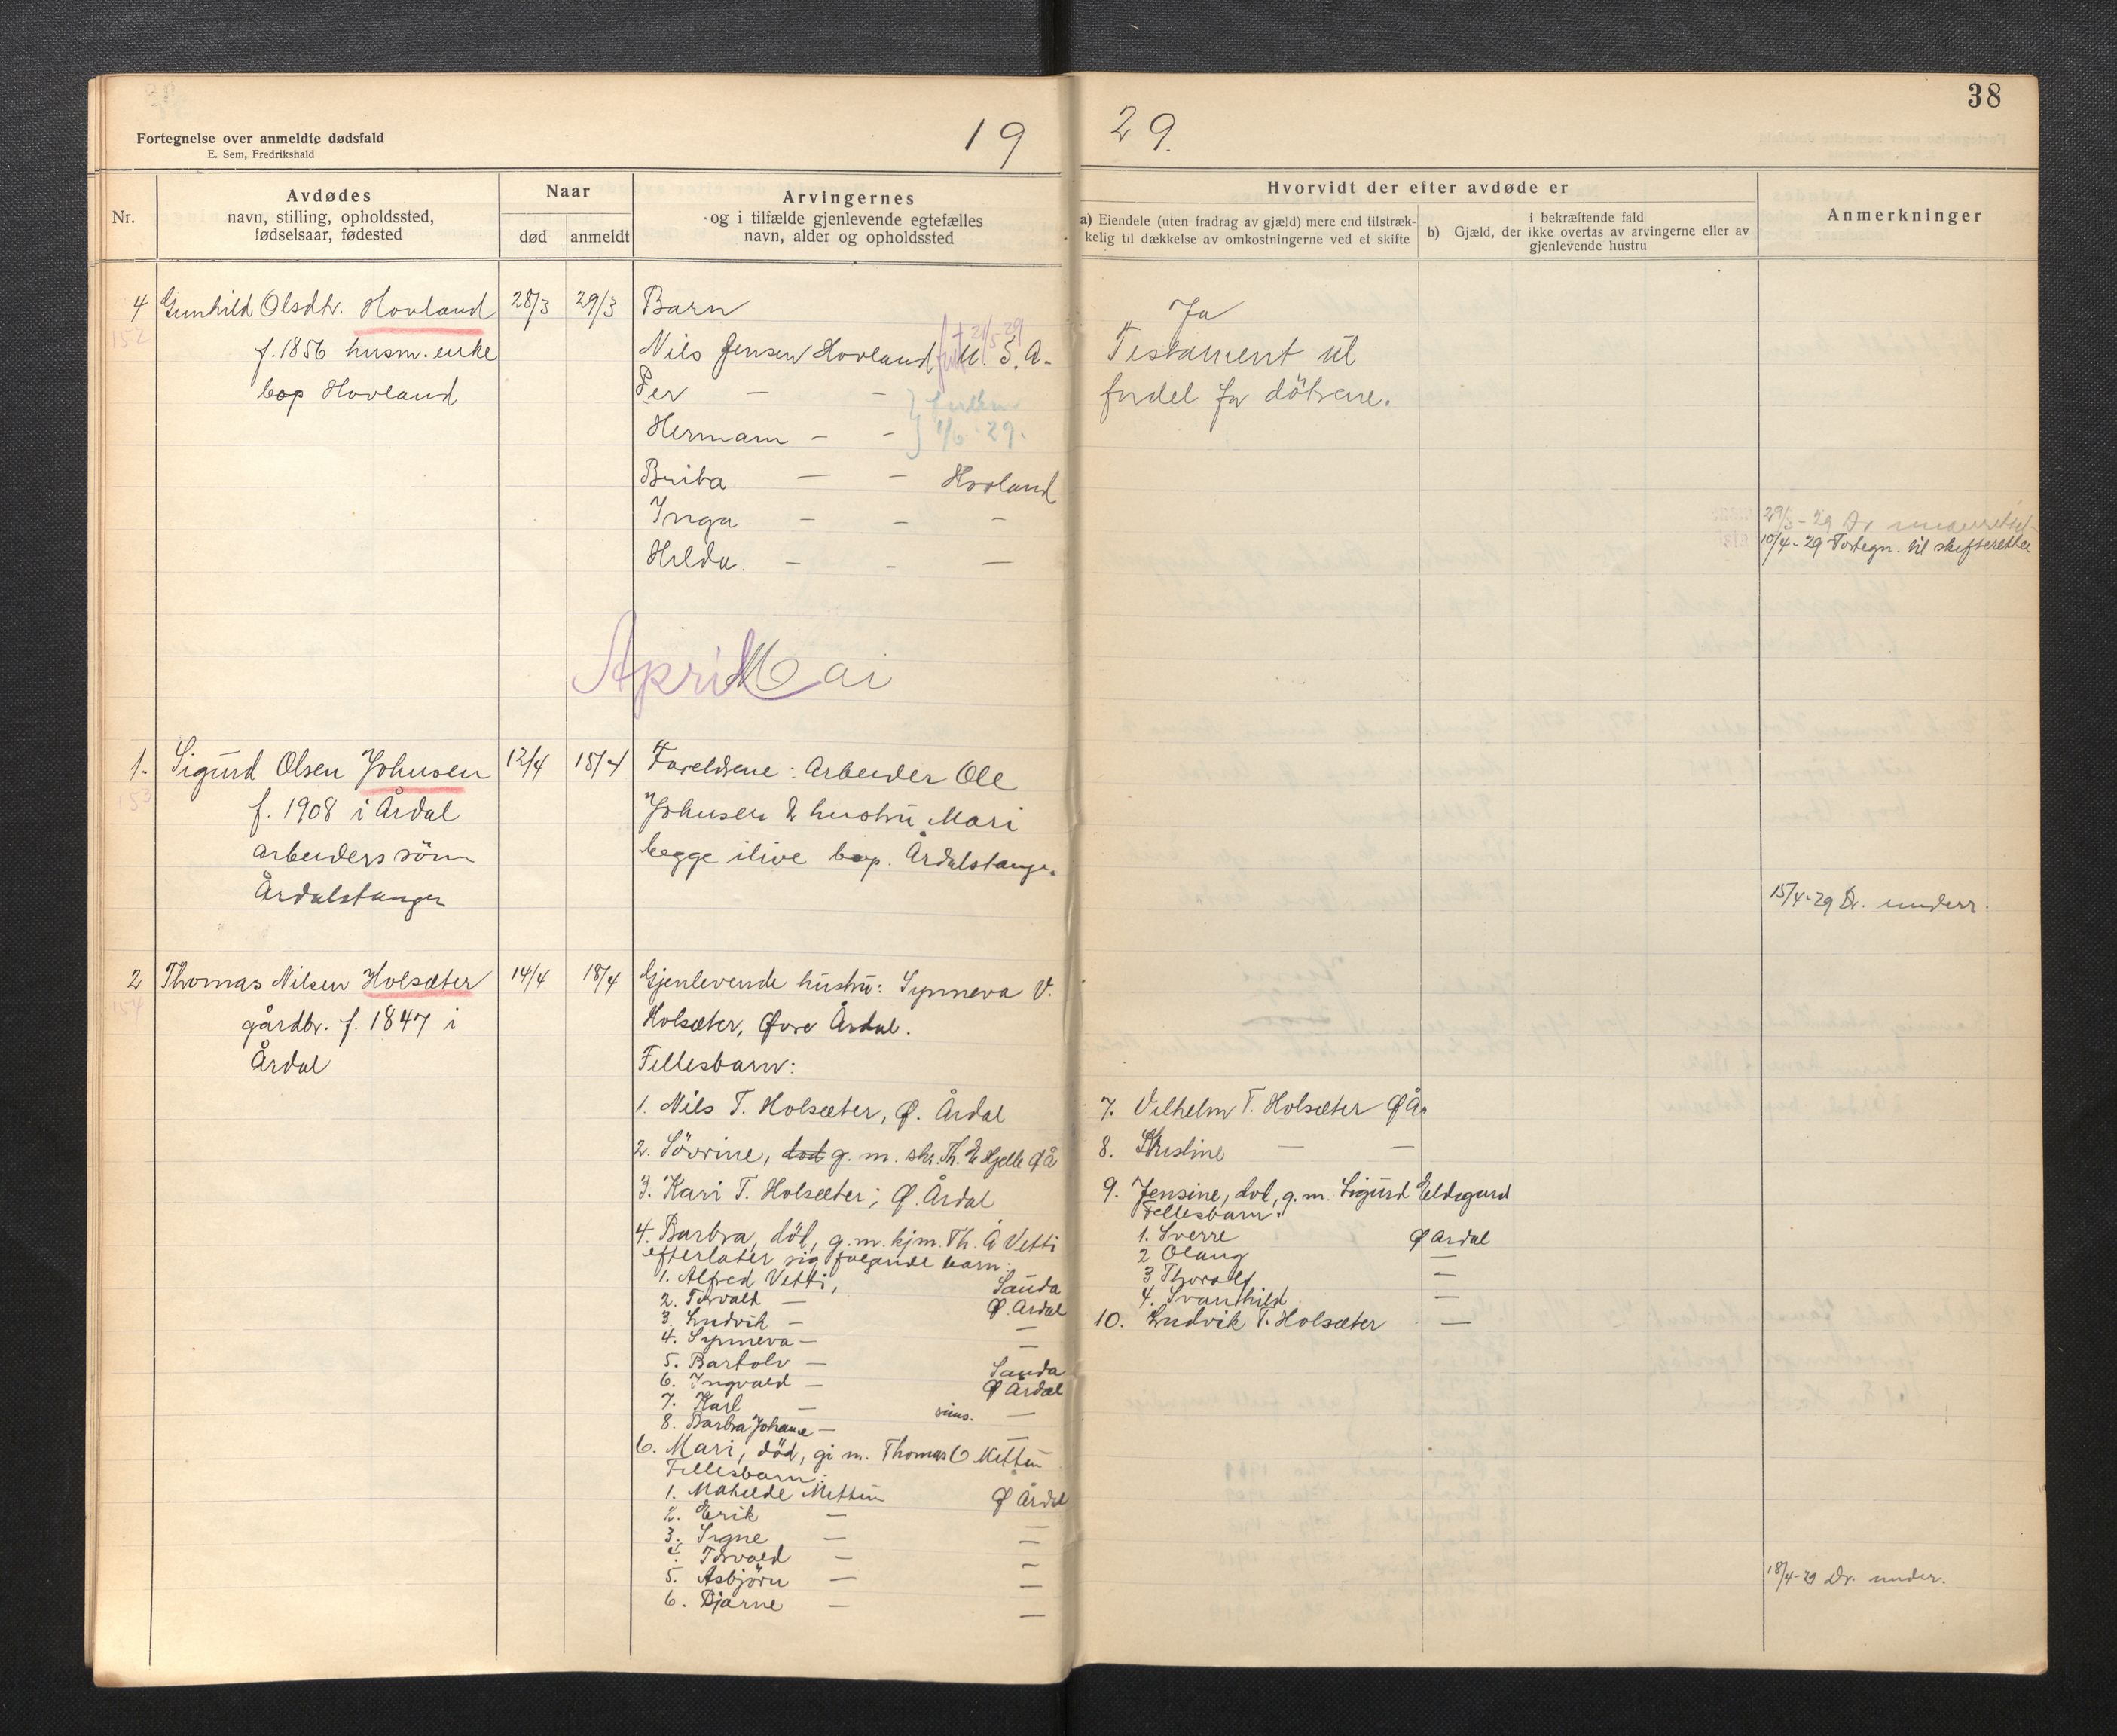 38
Fortegnelse over anmeldte dødsfald
E. Sem, Fredrikshald
19 29.
Nr.
Avdødes
navn, stilling, opholdssted,
fødselsaar, fødested
Naar
død
anmeldt
Arvingernes
og i tilfælde gjenlevende egtefælles
navn, alder og opholdssted
Hvorvidt der efter avdøde er
a) Eiendele (uten fradrag av gjæld) mere end tilstræk-
kelig til dækkelse av omkostningerne ved et skifte
i bekræftende fald
b) Gjæld, der ikke overtas av arvingerne eller av
gjenlevende hustru
Anmerkninger
4 Gunhild Olsdtr. Hovland 28/3 29/3 Barn
152
f. 1856 husm. enke
bop Hovland
† 21/5-29
Nils Jensen Hovland U.S.A.
Per — —
Hermann — —
1/6-29.
Brita — — Hovland
Inga — — —
Hilda. — — —
Ja
Testament til
fordel for døtrene.
10/4-29 Fortegn. til skifteretten
April Mai
1. Sigurd Olsen Johnsen 12/4 15/4 Foreldrene: Arbeider Ole
153
f. 1908 i Årdal
arbeiders sönn
Årdalstangen
Johnsen & hustru Mari
begge ilive bop. Årdalstangen.
15/4-29 Dr. underr.
2 Thomas Nilsen Holsæter 14/4 18/4 Gjenlevende hustru: Synneva V.
154
gårdbr. f. 1847 i
Årdal
Holsæter, Øvre Årdal.
Fellesbarn:
1. Nils T. Holsæter, Ø. Årdal
2. Sövrine, död g. m. skr. Th. E Hjelle Ø Å
3. Kari T. Holsæter; Ø. Årdal
4. Barbra, död, g. m. kjm. Th. Å Vetti
efterlater sig folgende barn:
1. Alfred Vetti, Sauda
2. Torvald — Ø. Årdal
3. Ludvik — —
4. Synneva — —
5. Bartolv — Sauda
6. Ingvald — Ø Årdal
7. Karl — —
8. Barbra Johanne — —
6. Mari, död, gi m. Thomas O Nettun
Fellesbarn:
1. Mathilde Nettun Ø Årdal
2. Erik — —
3. Signe — —
4. Torvald — —
5. Asbjörn — —
6. Bjarne — —
7. Vilhelm T. Holsæter Ø Å.
8. Kristine — —
9. Jensine, död, g. m. Sigurd Eldegard
Fellesbarn:
1. Sverre Ø Årdal
2 Olaug —
3 Thorald —
4. Svanhild —
10. Ludvik T. Holsæter —
18/4-29 Dr. under.